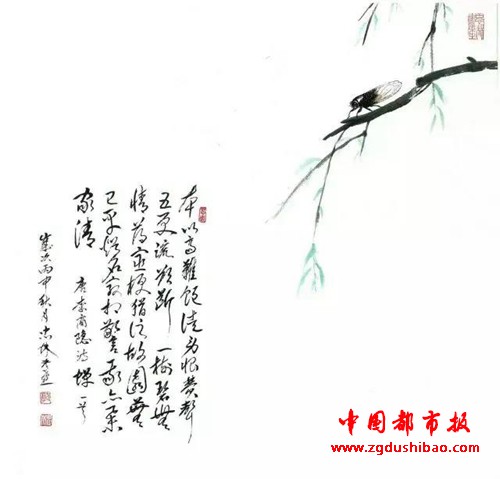 本以高難飽徒勞恨費聲
五更疏欲斷一樹碧無
情薄宦梗猶泛故園蕪
已平煩君最相警我亦舉
家清 唐李商隱詩蟬一首
歲次丙申秋月
中国都市报
www.zgdushibao.com